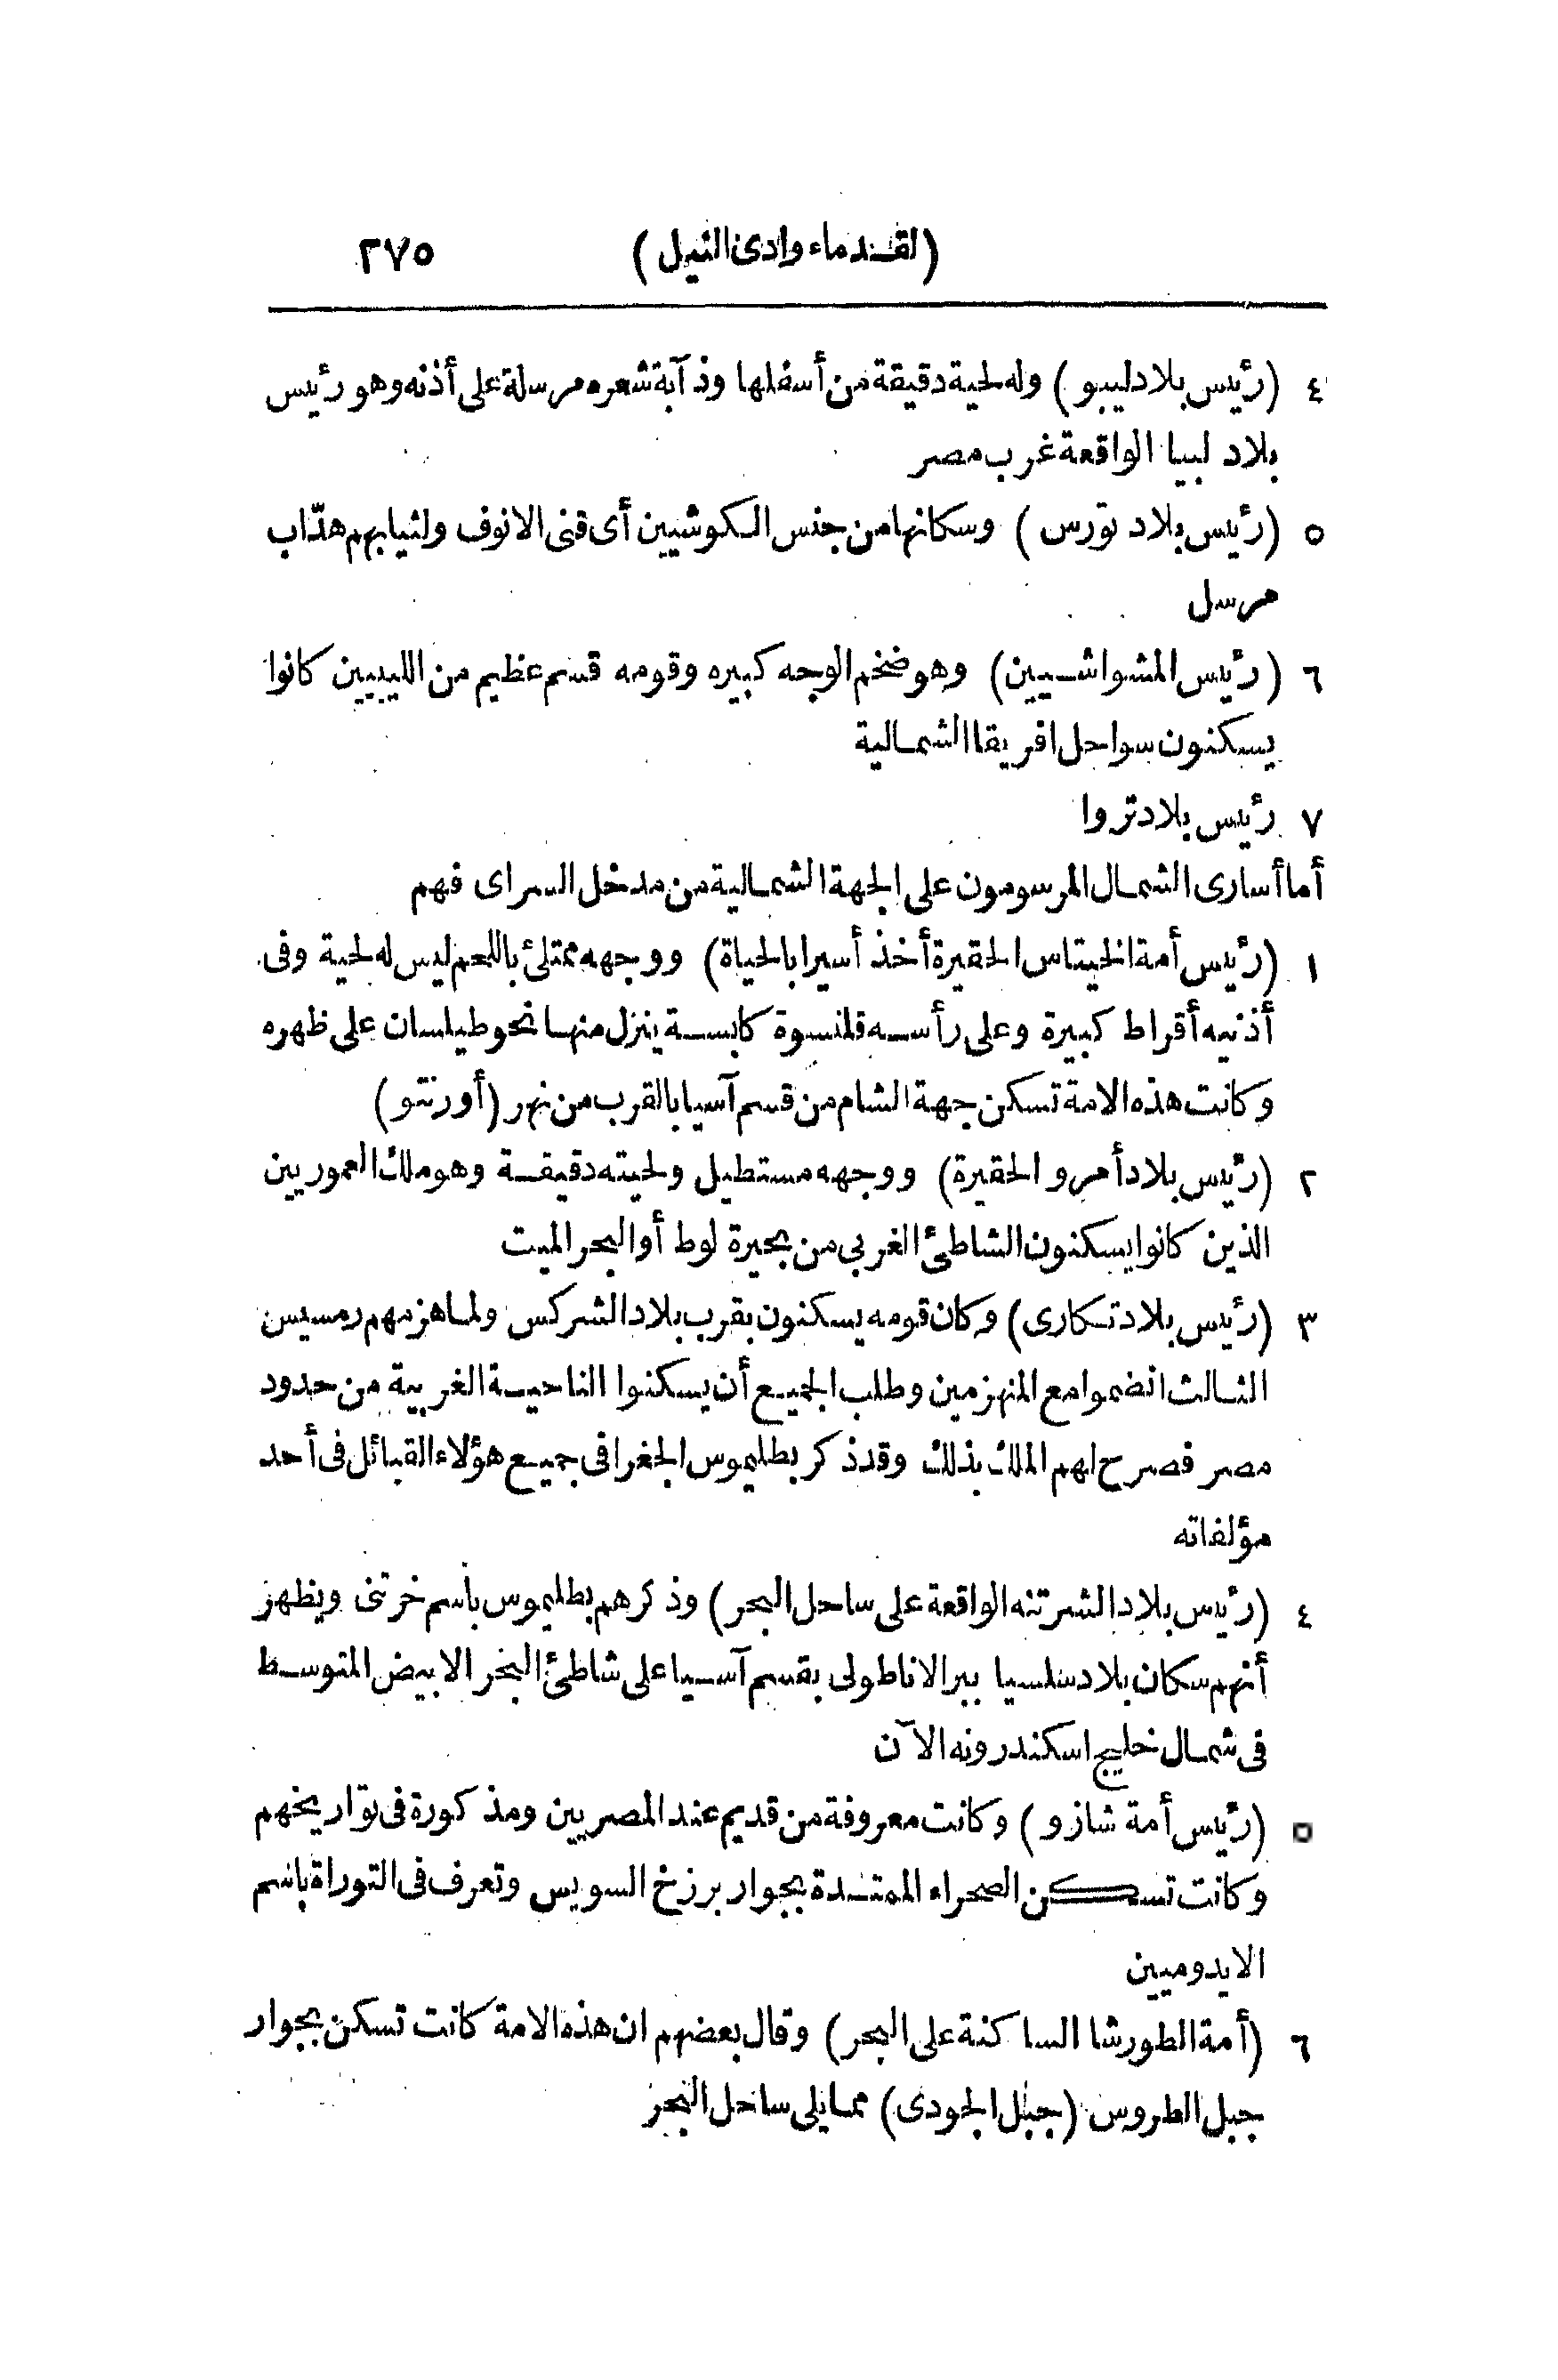 (لقدماء وادى النيل) ٢٧٥
٤ (رئيس بلاد ليبو) وله لحية دقيقة من أسفلها وذآبة شعره مرسلة على أذنه وهو رئيس
بلاد لبيا الواقعة غرب مصر
٥ (رئيس بلاد تورس) وسكانها من جنس الكوشيين أى قنى الانوف ولثيابهم هدّاب
مرسل
٦ (رئيس المشواشيين) وهو ضخم الوجه كبيره وقومه قسم عظيم من الليبيين كانوا
يسكنون سواحل افريقا الشمالية
٧ رئيس بلاد تروا
أما أسارى الشمال المرسومون على الجهة الشمالية من مدخل السراى فهم
١ (رئيس أمة الخيتاس الحقيرة أخذ أسيرا بالحياة) ووجهه ممتلئ باللحم ليس له لحية وفى
أذنيه أقراط كبيرة وعلى رأسه قلنسوة كابسة ينزل منها نحو طيلسان على ظهره
وكانت هذه الامة تسكن جهة الشام من قسم آسيا بالقرب من نهر (أورنتو)
٢ (رئيس بلاد أمرو الحقيرة) ووجهه مستطيل ولحيته دقيقة وهو ملك العموريين
الذين كانوا يسكنون الشاطئ الغربى من بحيرة لوط أو البحر الميت
٣ (رئيس بلاد تكارى) وكان قومه يسكنون بقرب بلاد الشركس ولما هزمهم رمسيس
الثالث انضموا مع المنهزمين وطلب الجميع أن يسكنوا الناحية الغربية من حدود
مصر فصرح لهم الملك بذلك وقد ذكر بطليموس الجغرافى جميع هؤلاء القبائل فى أحد
مؤلفاته
٤ (رئيس بلاد الشرتنه الواقعة على ساحل البحر) وذكرهم بطليموس باسم خرتنى ويظهر
أنهم سكان بلاد سلسيا ببر الاناطولى بقسم آسيا على شاطئ البحر الابيض المتوسط
فى شمال خليج اسكندرونه الآن
٥ (رئيس أمة شازو) وكانت معروفة من قديم عند المصريين ومذكورة فى تواريخهم
وكانت تسكن الصحراء الممتدة بجوار برزخ السويس وتعرف فى التوراة باسم
الايدوميين
٦ (أمة الطورشا الساكنة على البحر) وقال بعضهم ان هذه الامة كانت تسكن بجوار
جبل الطروس (جبل الجودى) مما يلى ساحل البحر